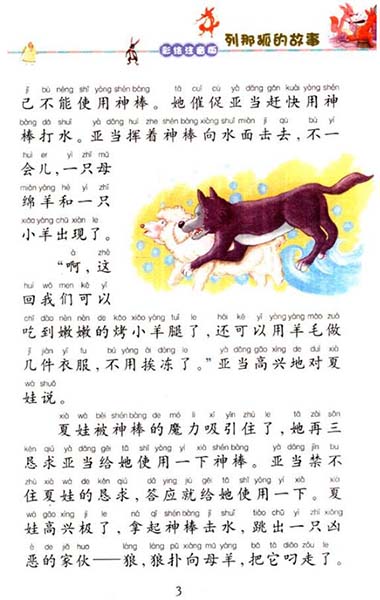 列那狐的故事
彩绘注音版
jǐ bù néng shǐ yòng shén bàng tā cuī cù yà dāng gǎn kuài yòng shén
己不能使用神棒。她催促亚当赶快用神
bàng dǎ shuǐ yà dāng huī zhe shén bàng xiàng shuǐ miàn jī qù bù yí
棒打水。亚当挥着神棒向水面击去，不一
huì er yì zhī mǔ
会儿，一只母
mián yáng hé yì zhī
绵羊和一只
xiǎo yáng chū xiàn le
小羊出现了。
à zhè
“啊，这
huí wǒ men kě yǐ
回我们可以
chī dào nèn nèn de kǎo xiǎo yáng tuǐ le hái kě yǐ yòng yáng máo zuò
吃到嫩嫩的烤小羊腿了，还可以用羊毛做
jǐ jiàn yī fu bú yòng ái dòng le yà dāng gāo xìng de duì xià
几件衣服，不用挨冻了。”亚当高兴地对夏
wá shuō
娃说。
xià wá bèi shén bàng de mó lì xī yǐn zhù le tā zài sān
夏娃被神棒的魔力吸引住了，她再三
kěn qiú yà dāng gěi tā shǐ yòng yí xià shén bàng yà dāng jīn bu
恳求亚当给她使用一下神棒。亚当禁不
zhù xià wá de kěn qiú dā yìng jiù gěi tā shǐ yòng yí xià xià
住夏娃的恳求，答应就给她使用一下。夏
wá gāo xìng jí le ná qǐ shén bàng jī shuǐ tiào chū yì zhī xiōng
娃高兴极了，拿起神棒击水，跳出一只凶
è de jiā huo láng láng pū xiàng mǔ yáng bǎ tā diāo zǒu le
恶的家伙——狼，狼扑向母羊，把它叼走了。
3